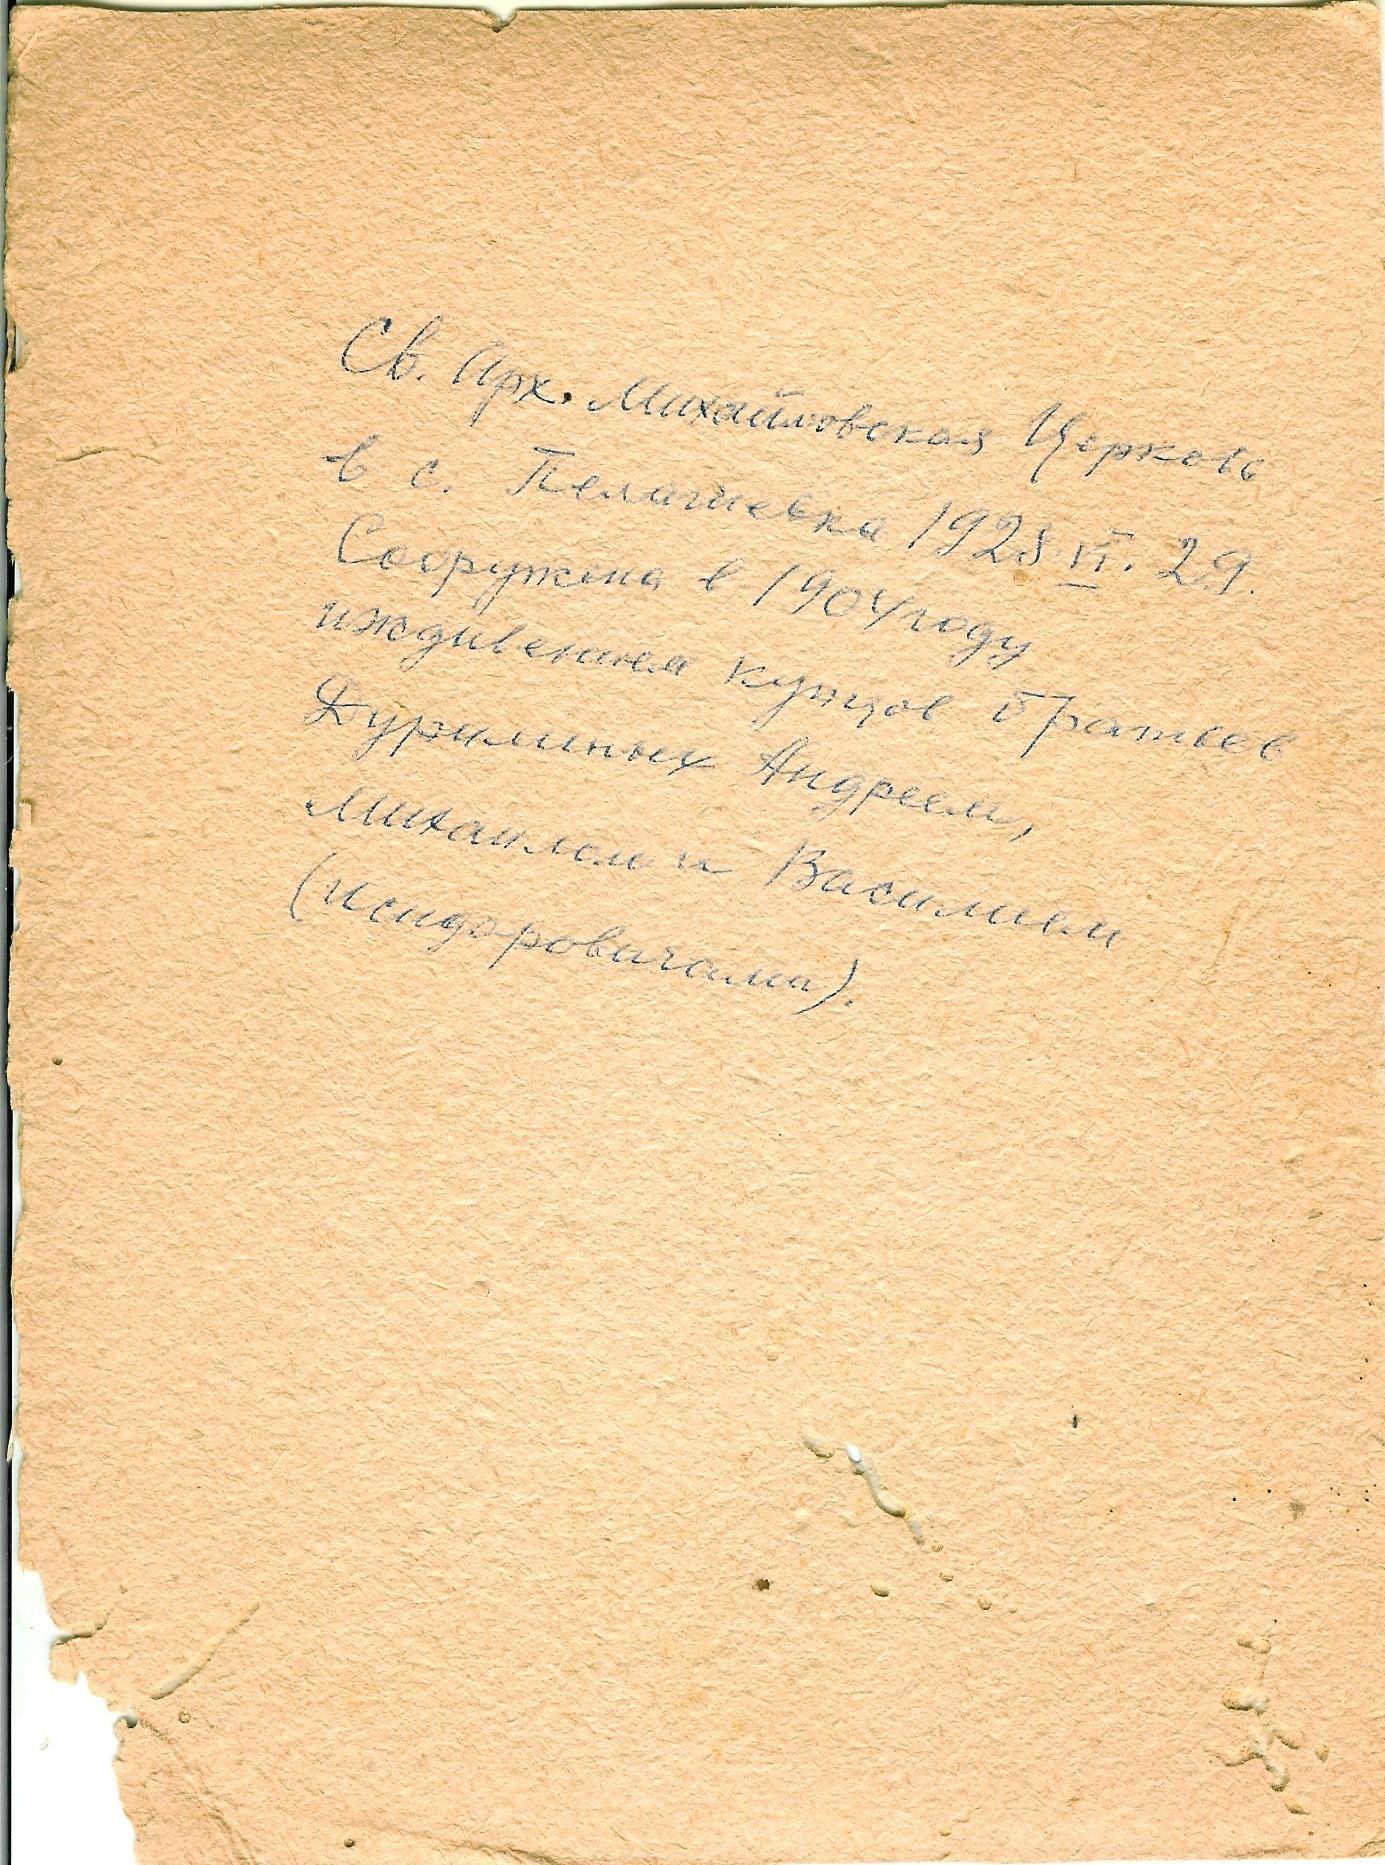 Св. Арх. Михайловская Церковь
в с. Пелагиевка 1928 VI. 29.
Сооружена в 1904 году
иждивением купцов братьев
Дурилиных Андреем,
Михаилом и Василием
(Исидоровичами).